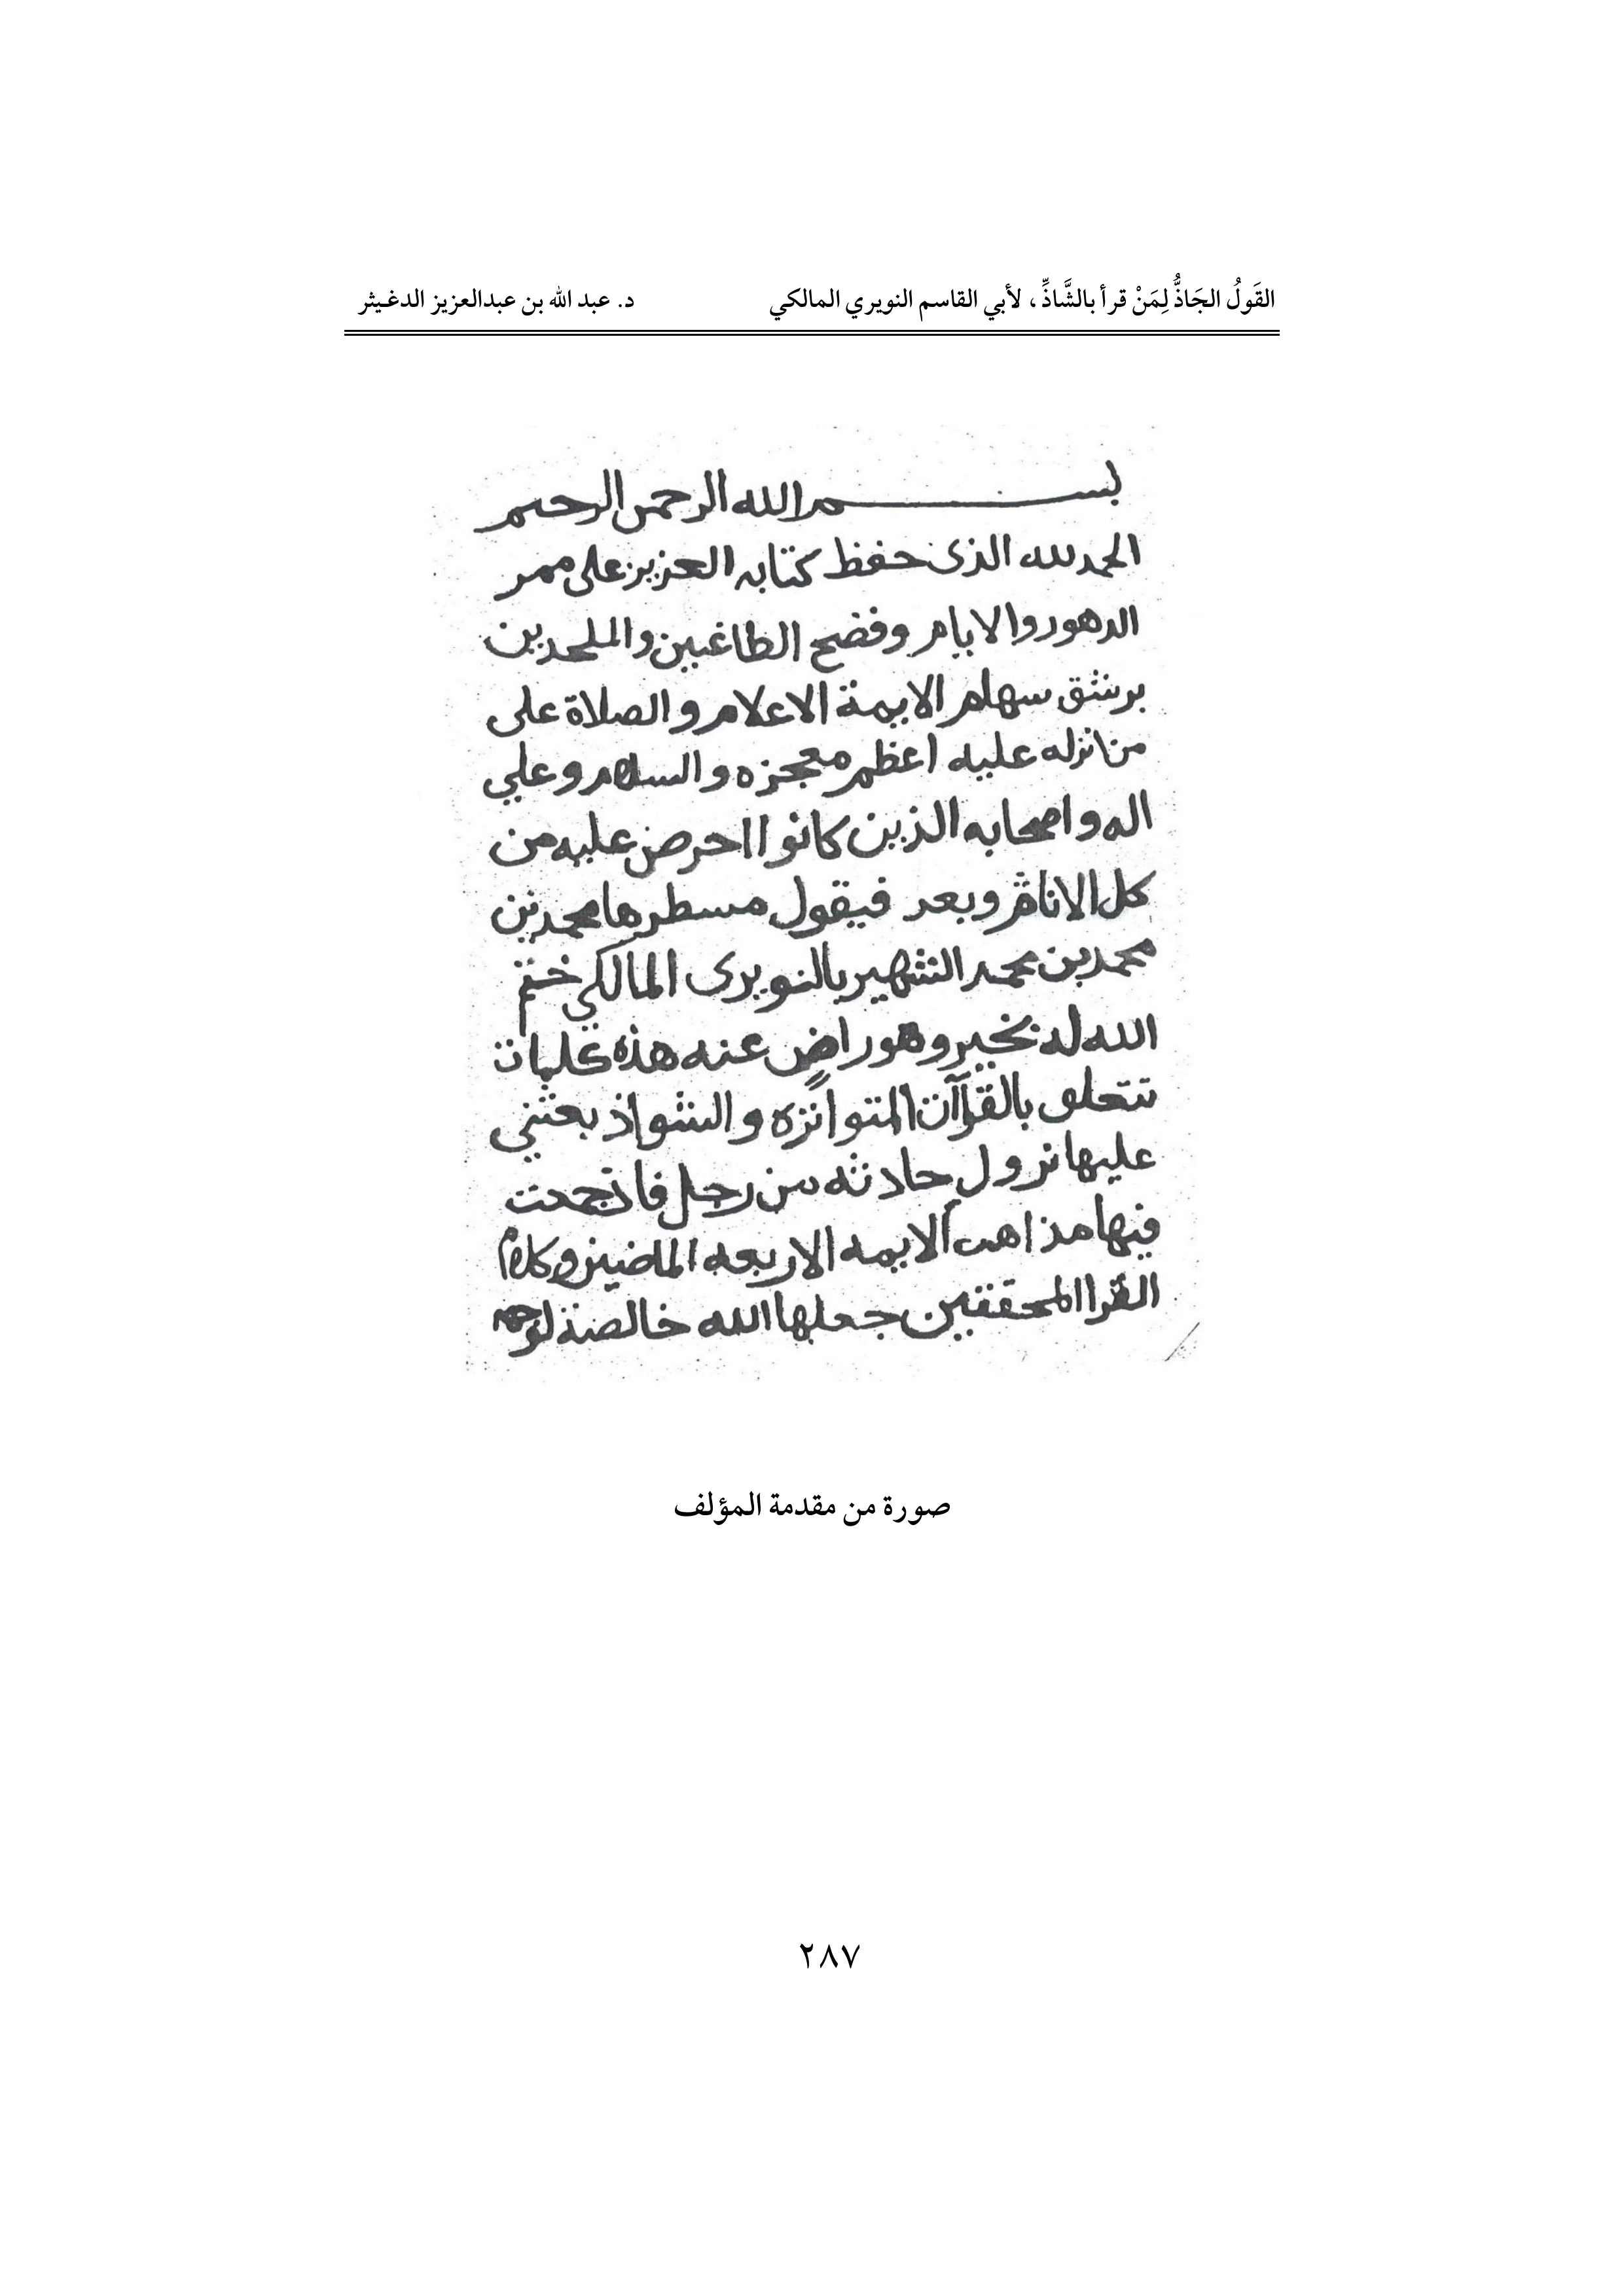 القَولُ الجَاذُّ لِمَنْ قرأ بالشَّاذِّ ، لأبي القاسم النويري المالكي د. عبد الله بن عبدالعزيز الدغيثر
بسم الله الرحمن الرحيم
الحمد لله الذى حفظ كتابه العزيز على ممر
الدهور والايام وفضح الطاغين والملحدين
برشق سهام الايمة الاعلام والصلاة على
من انزله عليه اعظم معجزه والسلام وعلي
اله واصحابه الذين كانوا احرص عليه من
كل الانام وبعد فيقول مسطرها محمد بن
محمد بن محمد الشهير بالنويرى المالكي ختم
الله له بخير وهو راضٍ عنه هذه كلمات
تتعلق بالقرآن المتواتره والشواذ بعثني
عليها نزول حادثه من رجل فاتجهت
فيها مذاهب الايمه الاربعه الماضين وكلام
القرا المحققين جعلها الله خالصة لوجهه
صورة من مقدمة المؤلف
٢٨٧